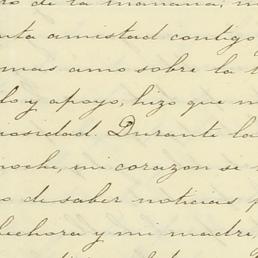 o de la mañana, m
nta amistad contigo
mas amo sobre la t
lo y apoyo, hizo que m
iosidad. Durante la
noche, mi corazon se
o de saber noticias
hechora y mi madre,